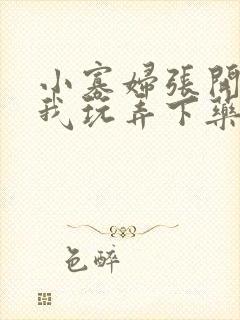 小寡婦張開
我玩弄下藥
色醉